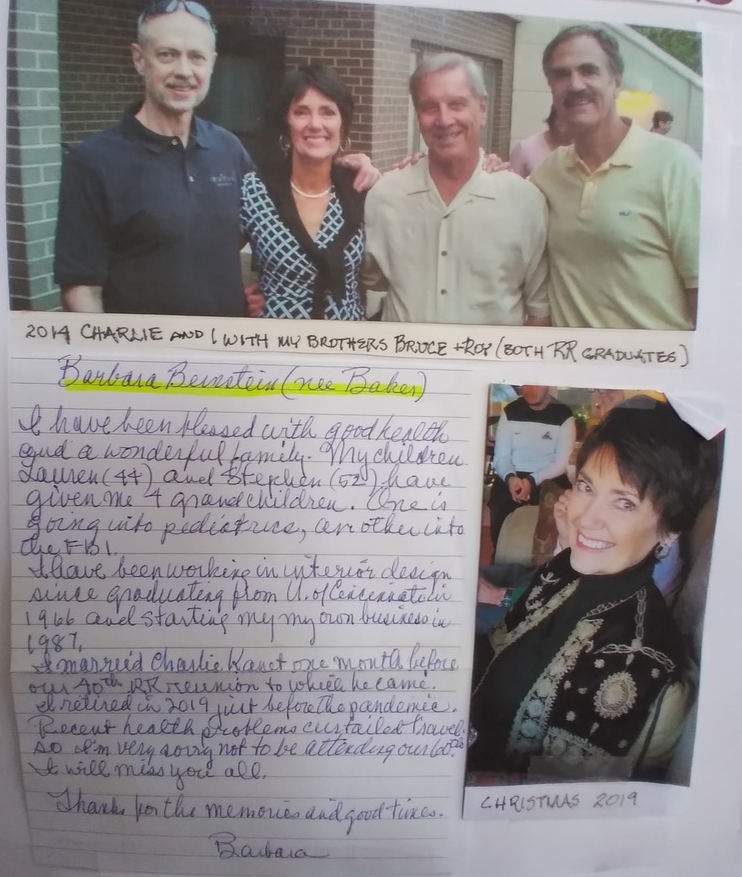 2014 CHARLIE AND I WITH MY BROTHERS BRUCE + ROY (BOTH RR GRADUATES)
Barbara Bernstein (nee Baker)
I have been blessed with good health
and a wonderful family. My children
Lauren (44) and Stephen (52) have
given me 4 grandchildren. One is
going into pediatrics, another into
the FBI.
I have been working in interior design
since graduating from U. of Cincinnati in
1966 and starting my my own business in
1987.
I married Charlie Kanet one month before
our 40th RR reunion to which he came.
I retired in 2019 just before the pandemic.
Recent health problems curtailed travel
so I'm very sorry not to be attending our 60th.
I will miss you all.
Thanks for the memories and good times.
Barbara
CHRISTMAS 2019